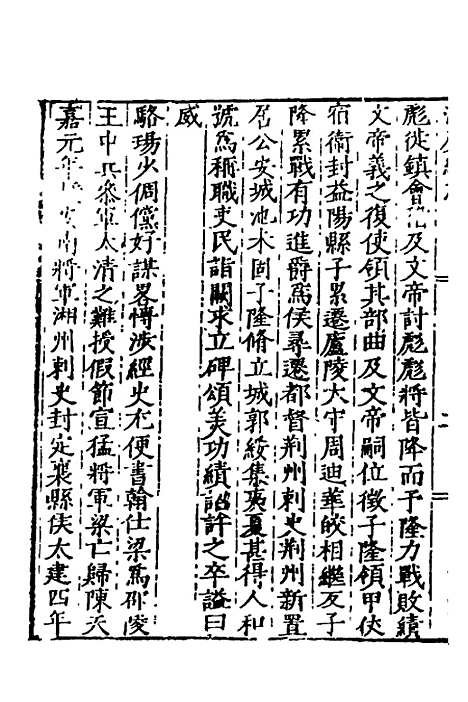 彪徙鎮會稽及文帝討彪彪將皆降而子隆力戰敗績
文帝義之復使領其部曲及文帝嗣位徵子隆領甲仗
宿衛封益陽縣子累遷廬陵太守周迪華皎相繼反子
降累戰有功進爵爲侯尋遷都督荆州刺史荆州新置
居公安城池未固子隆脩立城郭綏集夷夏甚得人和
號爲稱職吏民詣闕求立碑頌美功績詔許之卒謚曰
威
駱瑒少倜儻好謀畧愽涉經史尤便書翰仕梁爲邵陵
王中兵叅軍太清之難授假節宣猛將軍梁亡歸陳天
嘉元年 安南將軍湘州刺史封定襄縣侯太建四年